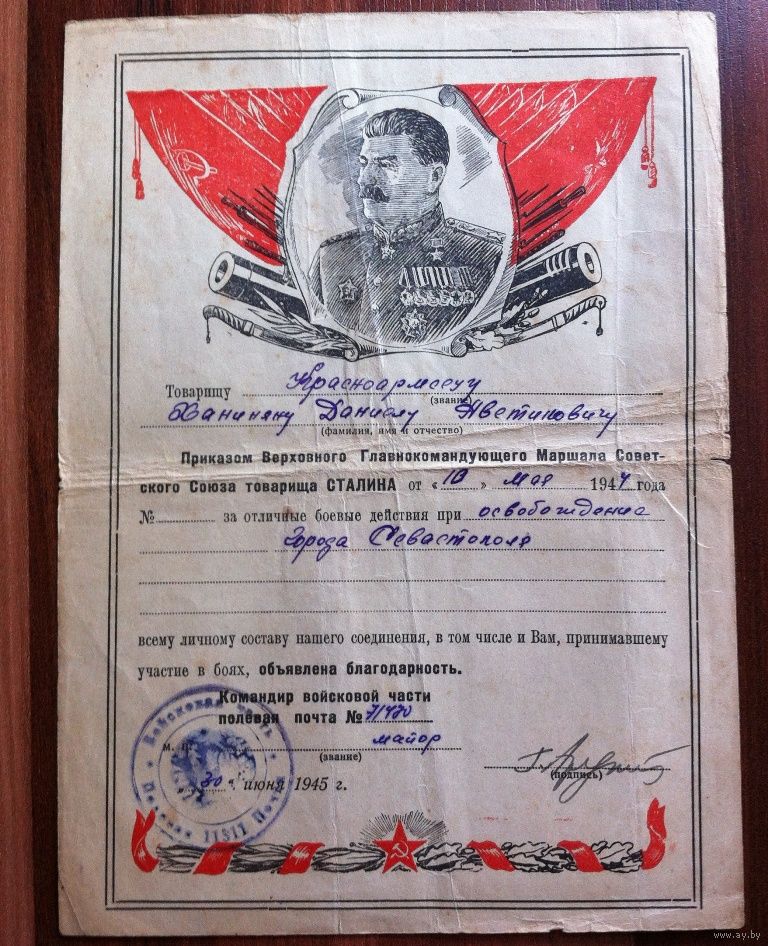 Товарищу Красноармейцу
(звание)
Ханиняну Даниелу Аветиковичу
(фамилия, имя и отчество)
Приказом Верховного Главнокомандующего Маршала Совет-
ского Союза товарища СТАЛИНА от «10» мая 1944 года
№ за отличные боевые действия при освобождение
города Севастополя
всему личному составу нашего соединения, в том числе и Вам, принимавшему
участие в боях, объявлена благодарность.
Командир войсковой части
полевая почта № 71470
м. п. майор
(звание)
(подпись)
30 июня 1945 г.
www.ay.by